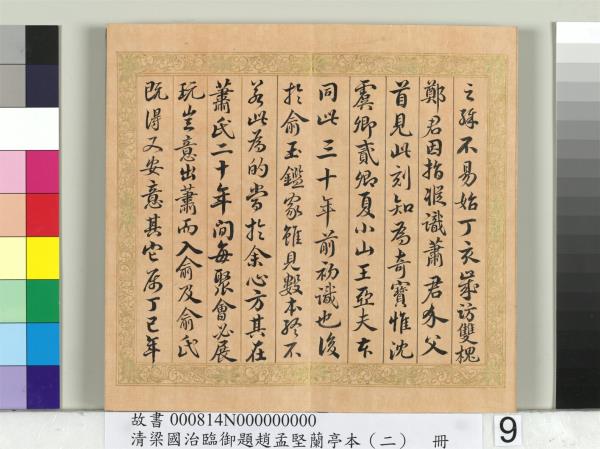 之殊不易始丁亥歲訪雙槐
鄭君因指猴識蕭君介父
首見此刻知為奇寶惟沈
虞卿貳卿夏小山王亞夫本
同此三十年前初識也後
於俞玉鑑家雖見數本終不
若此為的當於余心方其在
蕭氏二十年間每聚會必展
玩豈意出蕭而入俞及俞氏
既得又安意其它屬丁巳年
故書 000814N000000000
清梁國治臨御題趙孟堅蘭亭本（二） 冊
9